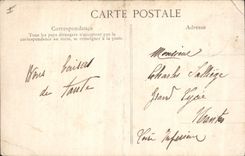 CARTE POSTALE
Correspondance
Tous les pays étrangers n'acceptent pas la
correspondance au recto, se renseigner à la poste.
Adresse
Bons baisers
de tante
Monsieur
Charles
Grand Lycée
Nantes
Loire Inférieure